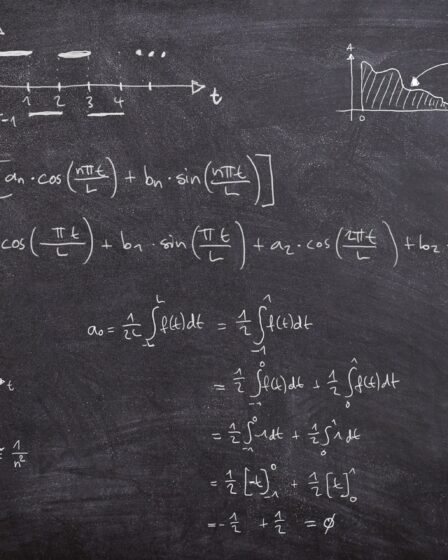 1 2 3 4 t
-1
A
0
[an · cos(nπt/L) + bn · sin(nπt/L)]
cos(πt/L) + b1 · sin(πt/L) + a2 · cos(2πt/L) + b2 ·
a0 = 1/2L ∫_{-L}^{L} f(t)dt = 1/2 ∫_{-1}^{1} f(t)dt
= 1/2 ∫_{-1}^{0} f(t)dt + 1/2 ∫_{0}^{1} f(t)dt
t
= 1/2 ∫_{-1}^{0} -1dt + 1/2 ∫_{0}^{1} 1dt
1/n²
= 1/2 [-t]_{-1}^{0} + 1/2 [t]_{0}^{1}
= -1/2 + 1/2 = ∅